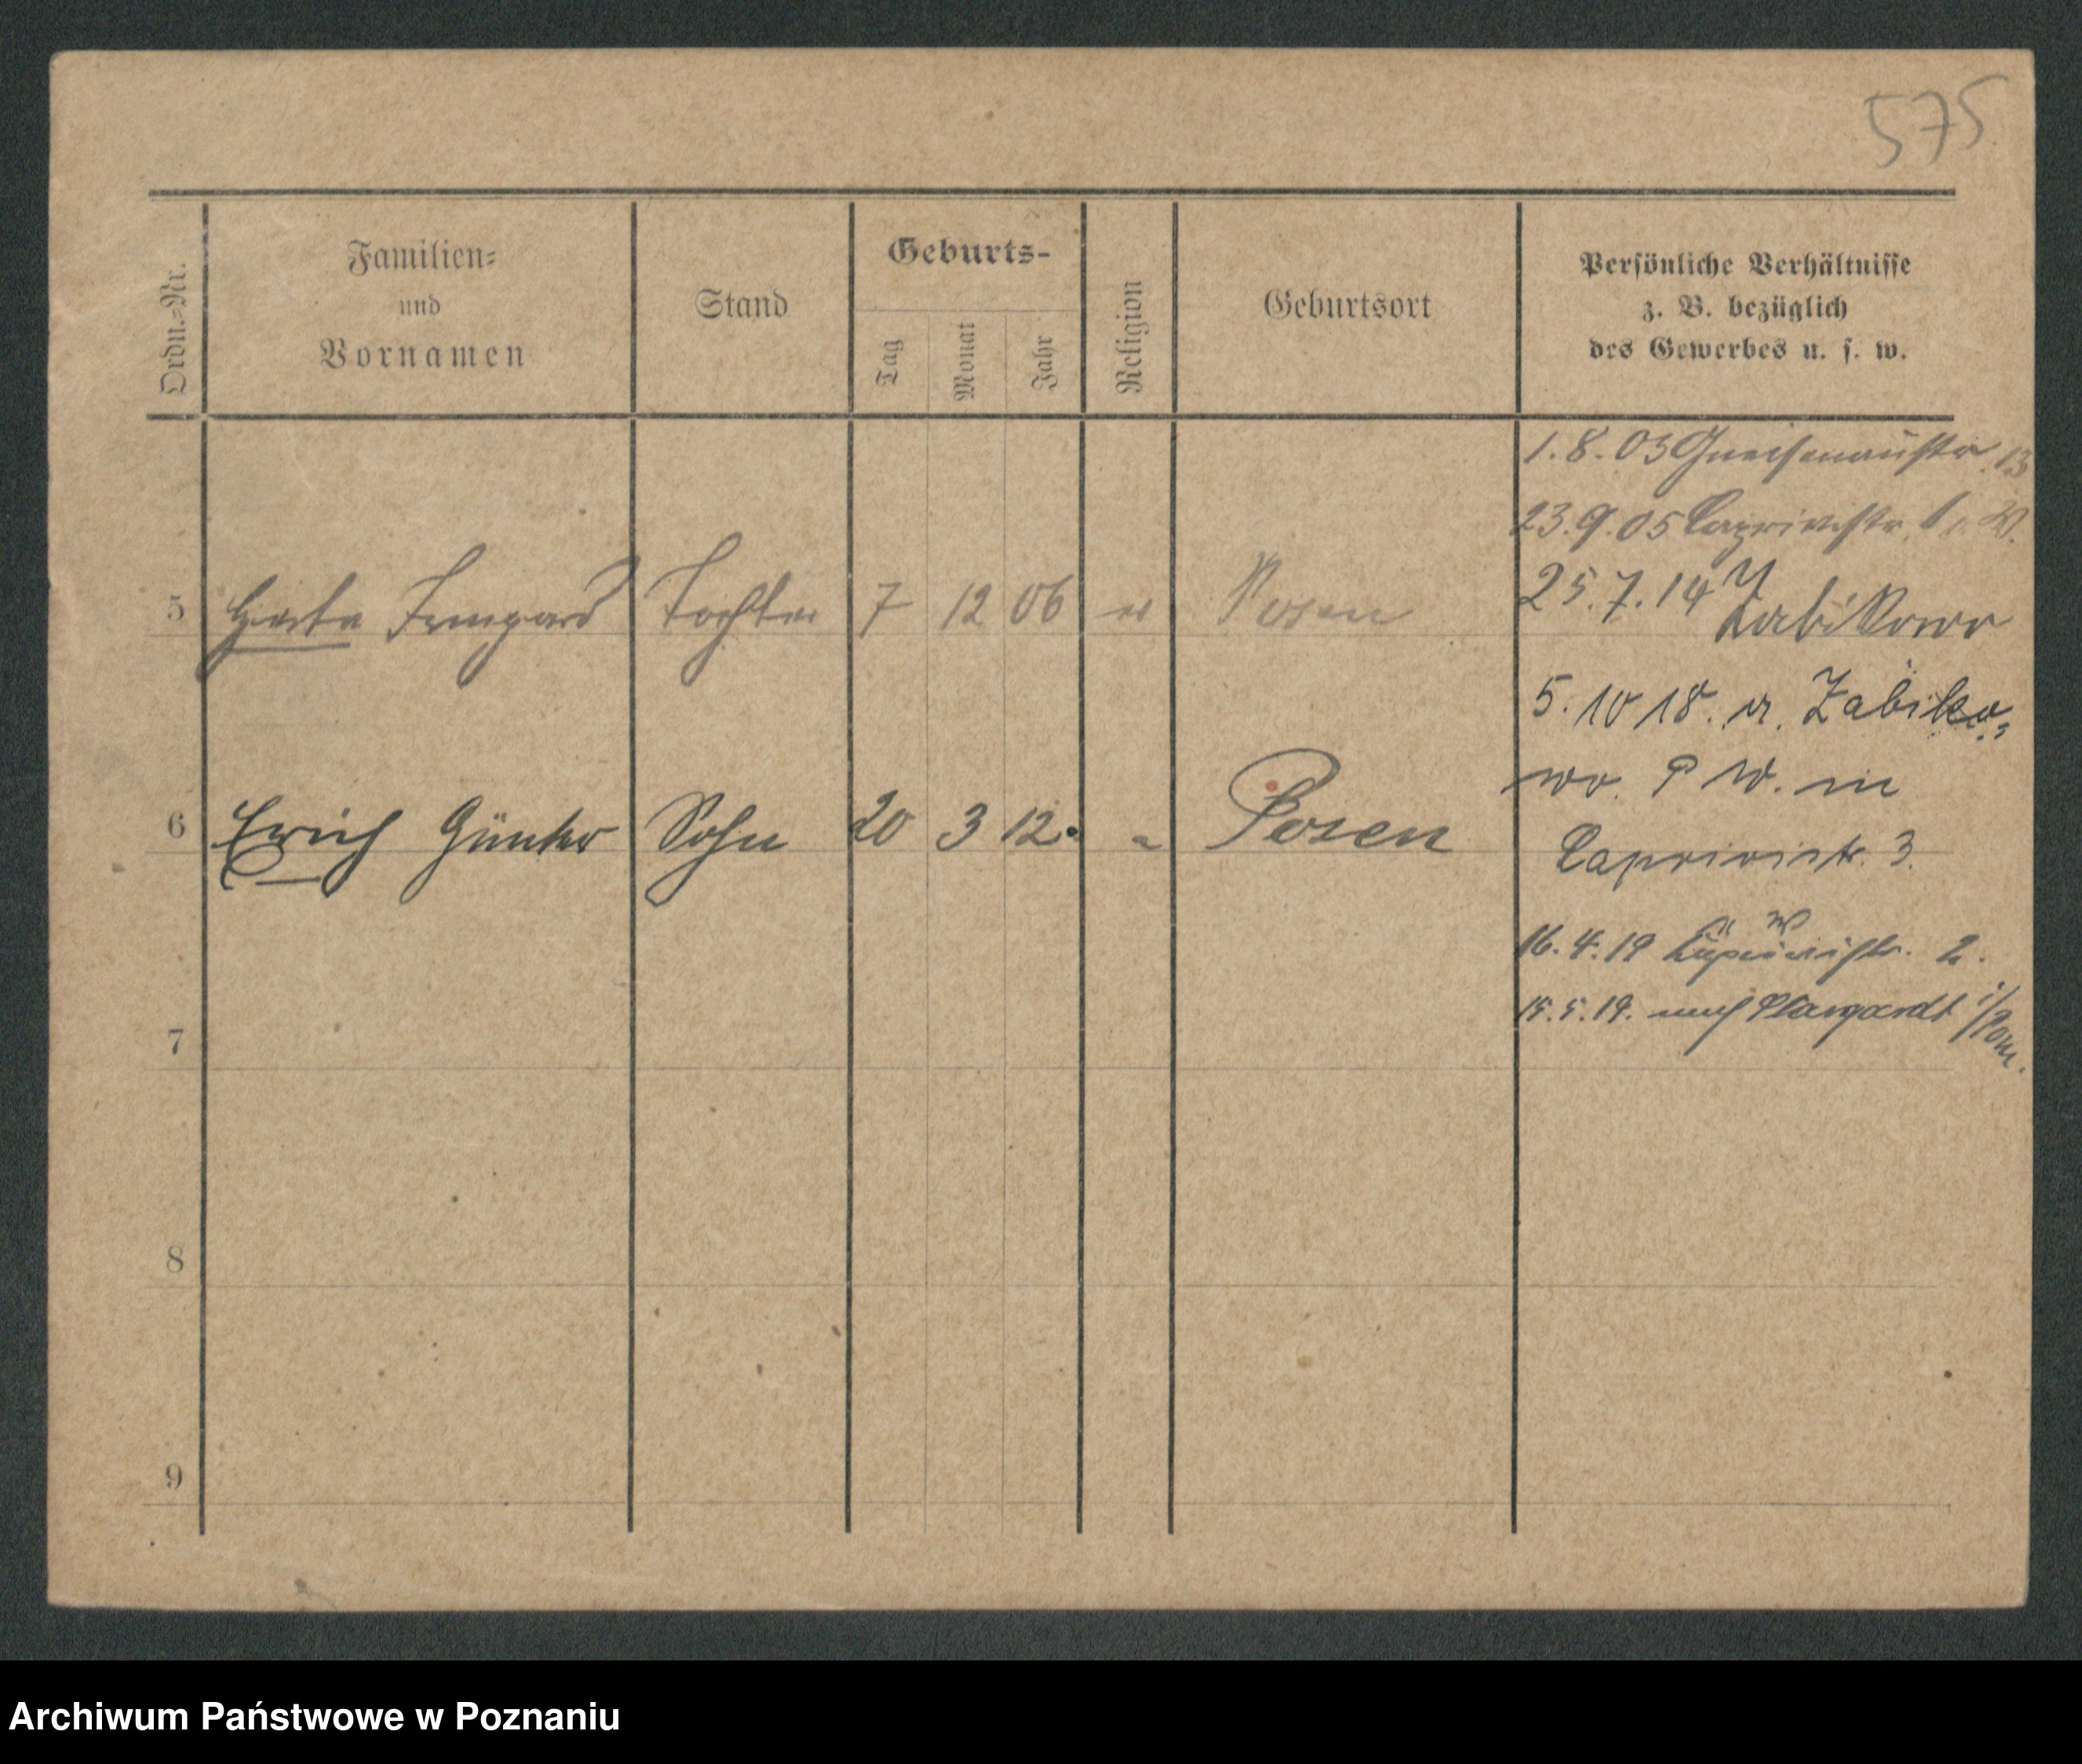 575
Ordn.-Nr.
Familien-
und
Vornamen
Stand
Geburts-
Tag
Monat
Jahr
Religion
Geburtsort
Persönliche Verhältnisse
z. B. bezüglich
des Gewerbes u. s. w.
1.8.03 Gneisenaustr. 13
23.9.05 Caprivistr. 1. W.
25.7.14 Zabikowo
5 Herta Irmgard Tochter 7 12 06 Posen
5.10 18. a. Zabiko-
wo. P W. in
6 Erich Günter Sohn 20 3 12. " Posen
Caprivistr. 3.
16.4.19 2.
15.5.19. nach Stargardt i/Pom.
7
8
9
Archiwum Państwowe w Poznaniu